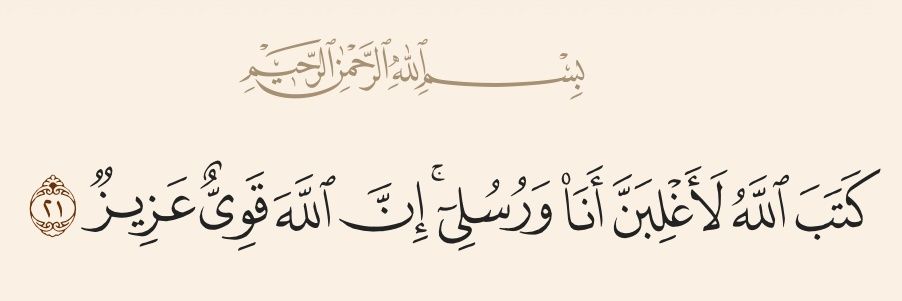 بِسْمِ ٱللَّهِ ٱلرَّحْمَٰنِ ٱلرَّحِيمِ
كَتَبَ ٱللَّهُ لَأَغْلِبَنَّ أَنَا۠ وَرُسُلِىٓ ۚ إِنَّ ٱللَّهَ قَوِىٌّ عَزِيزٌ ٢١